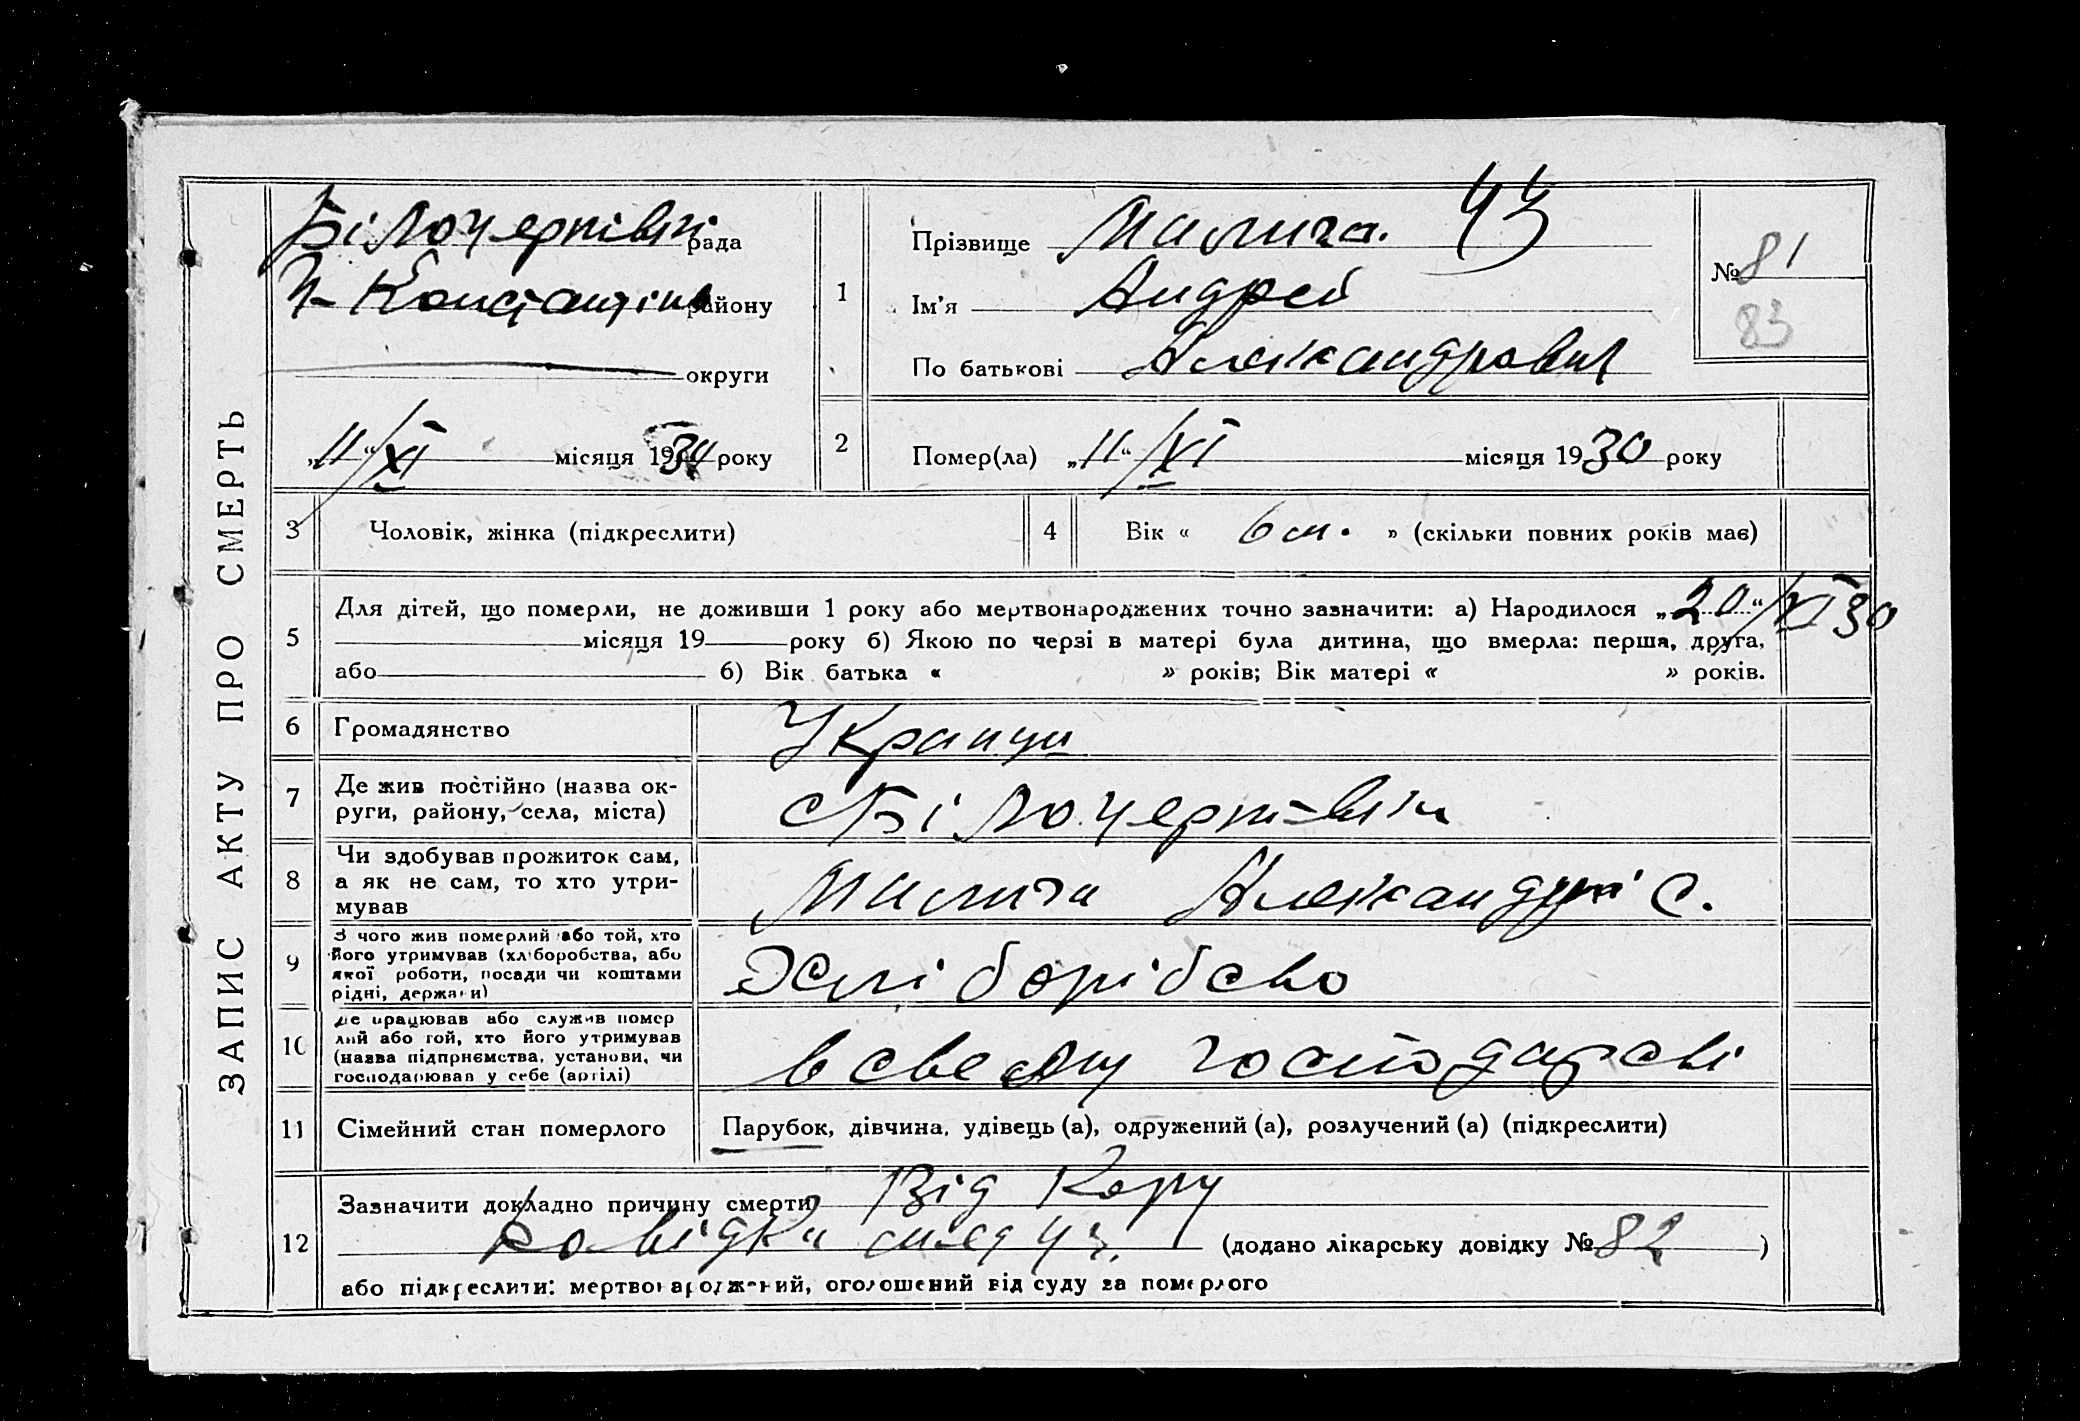 ЗАПИС АКТУ ПРО СМЕРТЬ
рада
району
округи
„11“/XI місяця 19 року
1
Прізвище Малига. 43
Ім’я Андрей
По батькові Александрович
№ 81
83
2
Помер(ла) „11“/XI місяця 1930 року
3
Чоловік, жінка (підкреслити)
4
Вік « 6 м. » (скільки повних років має)
5
Для дітей, що померли, не доживши 1 року або мертвонароджених точно зазначити: а) Народилося „20“/XI 30
місяця 19 року б) Якою по черзі в матері була дитина, що вмерла: перша, друга,
або б) Вік батька « » років; Вік матері « » років.
6
Громадянство
7
Де жив постійно (назва ок-
руги, району, села, міста)
8
Чи здобував прожиток сам,
а як не сам, то хто утри-
мував
Малига С.
9
З чого жив померлий або той, хто
його утримував (хліборобства, або
якої роботи, посади чи коштами
рідні, держави)
10
Де працював або служив помер
лий або той, хто його утримував
(назва підприємства, установи, чи
господарював у себе (артілі)
в
11
Сімейний стан померлого
Парубок, дівчина, удівець (а), одружений (а), розлучений (а) (підкреслити)
12
Зазначити докладно причину смерти Від Кору
(додано лікарську довідку № 82 )
або підкреслити: мертвонароджений, оголошений від суду за померлого